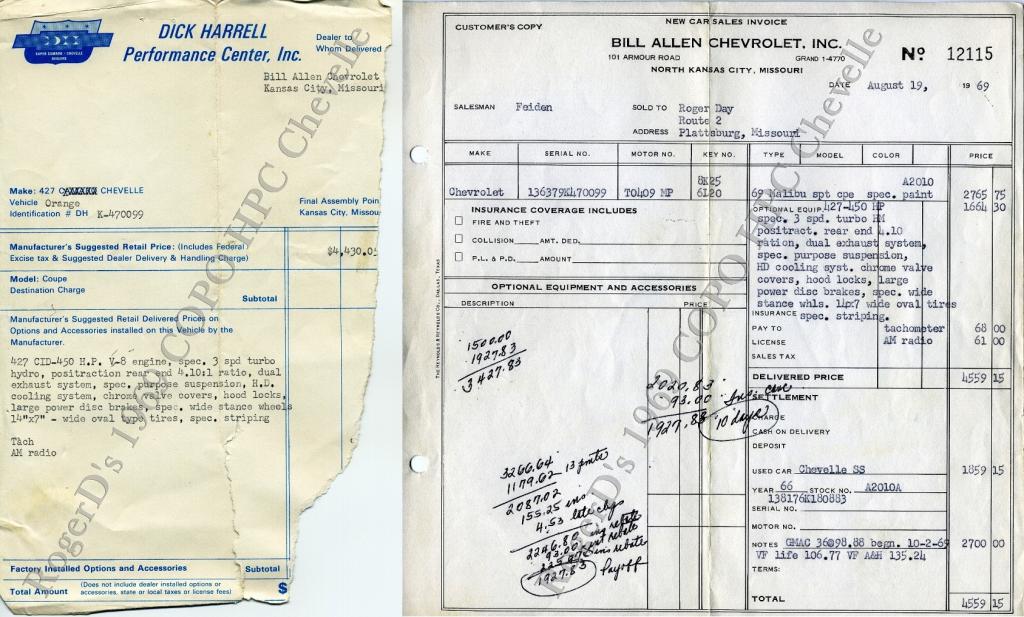 DICK HARRELL
Performance Center, Inc.
Dealer to
Whom Delivered
Bill Allen Chevrolet
Kansas City, Missouri
Make: 427 CAMARO CHEVELLE
Vehicle Orange
Identification # DH K-470099
Final Assembly Poin
Kansas City, Missou
Manufacturer's Suggested Retail Price: (Includes Federal
Excise tax & Suggested Dealer Delivery & Handling Charge)
$4,430.05
Model: Coupe
Destination Charge
Subtotal
Manufacturer's Suggested Retail Delivered Prices on
Options and Accessories installed on this Vehicle by the
Manufacturer.
427 CID-450 H.P. V-8 engine, spec. 3 spd turbo
hydro, positraction rear end 4.10:1 ratio, dual
exhaust system, spec. purpose suspension, H.D.
cooling system, chrome valve covers, hood locks,
large power disc brakes, spec. wide stance wheels
14"x7" - wide oval type tires, spec. striping
Tach
AM radio
Factory Installed Options and Accessories
Subtotal
Total Amount
(Does not include dealer installed options or
accessories, state or local taxes or license fees)
$
RogerD's 1969 COPO HPC Chevelle
CUSTOMER'S COPY
NEW CAR SALES INVOICE
BILL ALLEN CHEVROLET, INC.
101 ARMOUR ROAD GRAND 1-4770
NORTH KANSAS CITY, MISSOURI
No. 12115
DATE August 19, 19 69
SALESMAN Feiden
SOLD TO Roger Day
Route 2
ADDRESS Plattsburg, Missouri
MAKE SERIAL NO. MOTOR NO. KEY NO. TYPE MODEL COLOR PRICE
8K25 A2010
Chevrolet 136379K470099 T0409 MP 6120 69 Malibu spt cpe spec. paint 2765 75
INSURANCE COVERAGE INCLUDES
FIRE AND THEFT
COLLISION AMT. DED.
P.L. & P.D. AMOUNT
OPTIONAL EQUIP. 427-450 HP 1664 30
spec. 3 spd. turbo HM
positract. rear end 4.10
ration, dual exhaust system,
spec. purpose suspension,
HD cooling syst. chrome valve
covers, hood locks, large
power disc brakes, spec. wide
stance whls. 14x7 wide oval tires
INSURANCE spec. striping.
PAY TO tachometer 68 00
LICENSE AM radio 61 00
SALES TAX
DELIVERED PRICE 4559 15
OPTIONAL EQUIPMENT AND ACCESSORIES
DESCRIPTION PRICE
THE REYNOLDS & REYNOLDS CO., DALLAS, TEXAS
1500.00
1927.83
3427.83
2020.83
93.00
1927.83
10 days
3266.64
1179.62 13 pmts
2087.02
155.25 ins
4.53 late chgs
2246.80
93.00
1927.83 Payoff
SETTLEMENT
CHARGE
CASH ON DELIVERY
DEPOSIT
USED CAR Chevelle SS 1859 15
YEAR 66 STOCK NO. A2010A
138176K180883
SERIAL NO.
MOTOR NO.
NOTES GMAC 36@98.88 begn. 10-2-69 2700 00
VF life 106.77 VF A&H 135.24
TERMS:
TOTAL 4559 15
RogerD's 1969 COPO HPC Chevelle